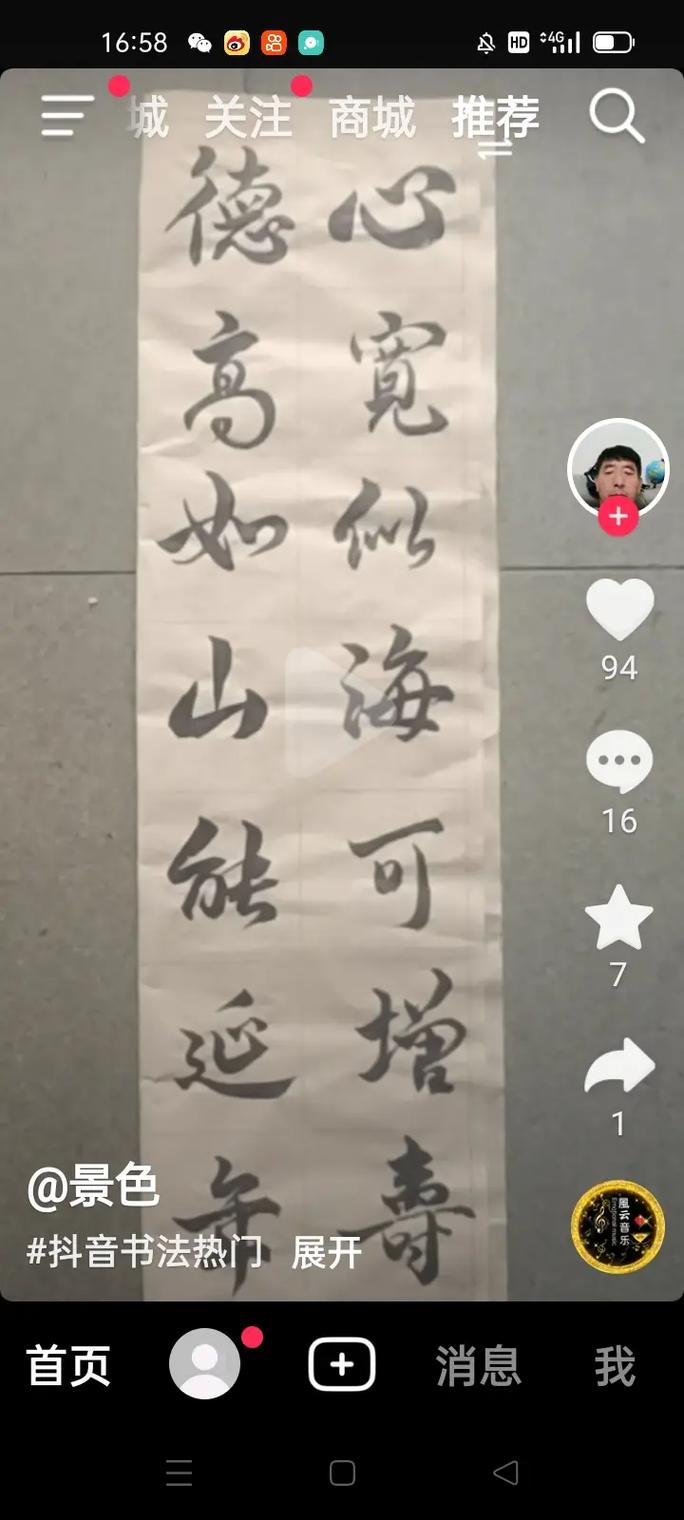 16:58
HD 4G
城 关注 商城 推荐
心寬似海可增壽
德高如山能延年
94
16
7
1
風云音乐
@景色
#抖音书法热门 展开
首页 消息 我